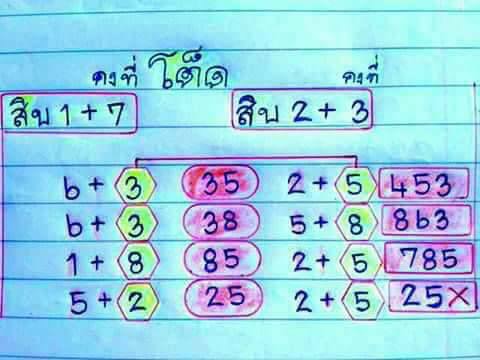 คงที่ โต๊ด คงที่
สิบ 1 + 7 สิบ 2 + 3
6 + 3 35 2 + 5 453
6 + 3 38 5 + 8 863
1 + 8 85 2 + 5 785
5 + 2 25 2 + 5 25X